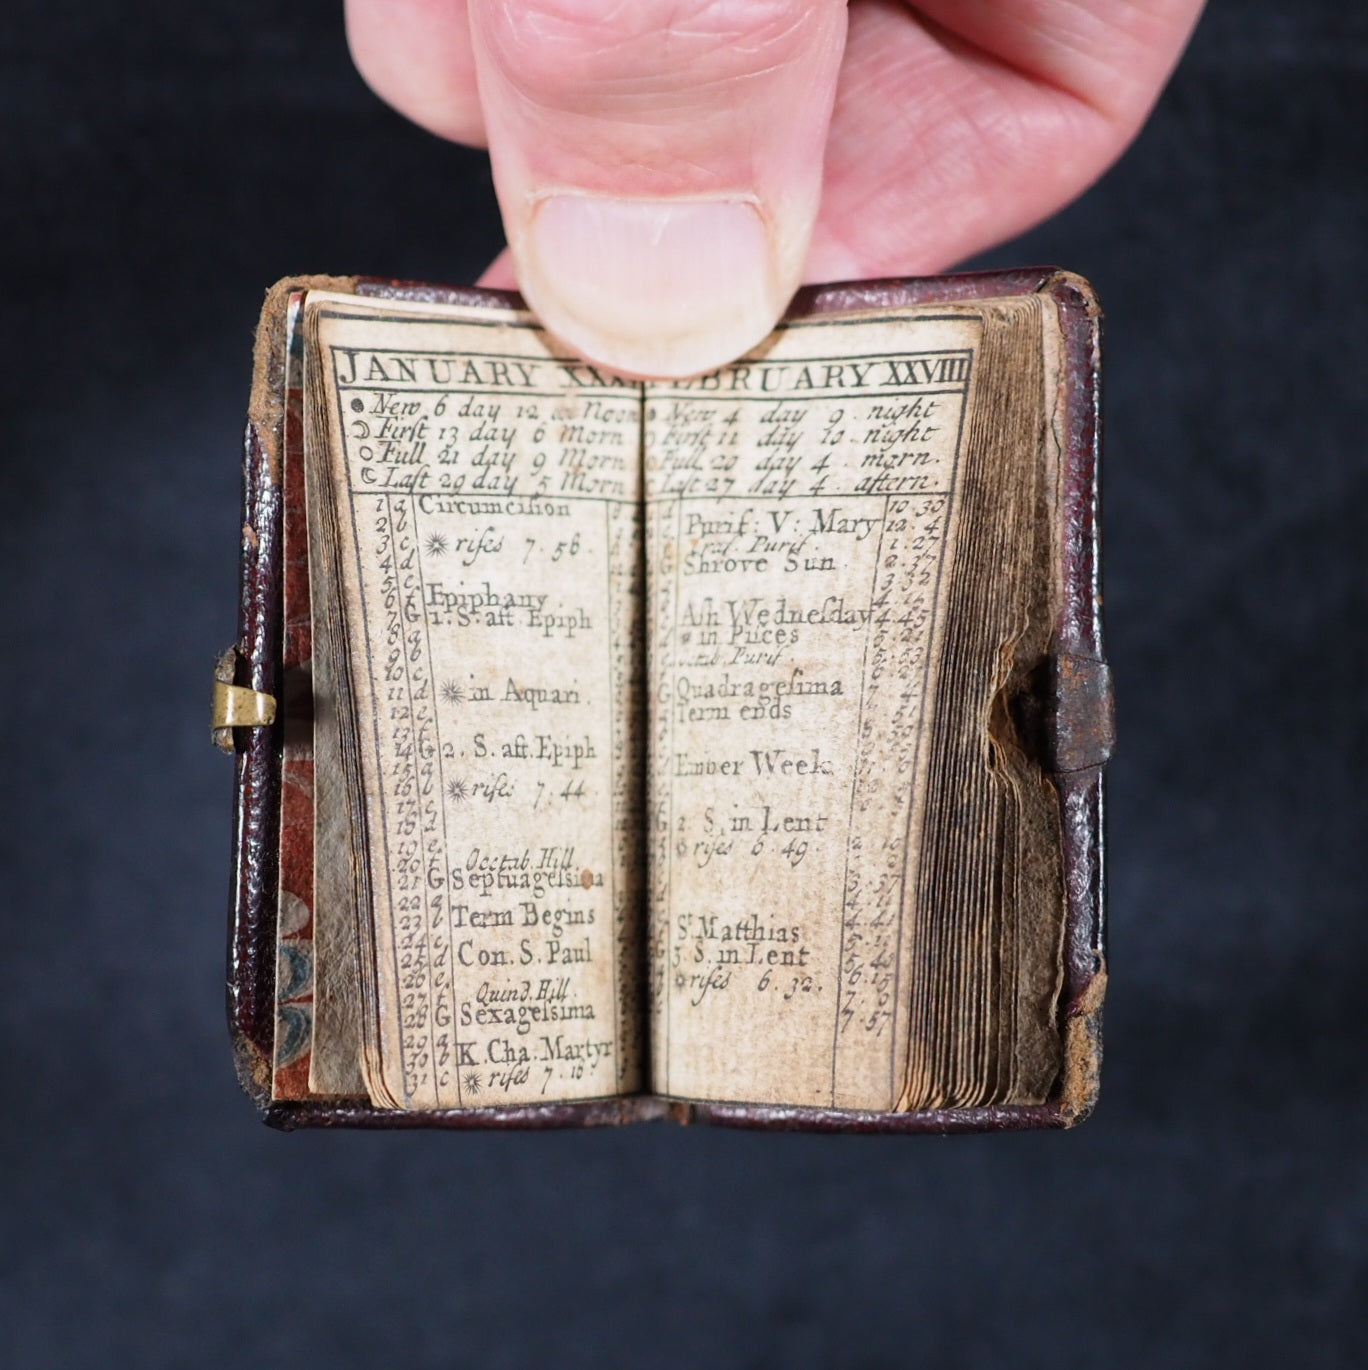 JANUARY XXX
● New 6 day 12 Noon
☽ Firſt 13 day 6 Morn
○ Full 21 day 9 Morn
☾ Laſt 29 day 5 Morn
1 a Circumciſion
2 b
3 c ☀ riſes 7. 56.
4 d
5 e
6 f Epiphany
7 G 1. S. aft Epiph
8 a
9 b
10 c
11 d ☀ in Aquari.
12 e
13 f
14 G 2. S. aft. Epiph
15 a
16 b ☀ riſes 7. 44
17 c
18 d
19 e
20 f Occtab. Hill.
21 G Septuageſima
22 a
23 b Term Begins
24 c
25 d Con. S. Paul
26 e
27 f Quind. Hill.
28 G Sexageſima
29 a
30 b K. Cha. Martyr
31 c ☀ riſes 7. 16.
BRUARY XXVIII
New 4 day 9. night
Firſt 11 day 10. night
Full 20 day 4. morn.
Laſt 27 day 4. aftern.
10. 30
Purif: V: Mary 12. 4
Purif. 1. 27
Shrove Sun. 2. 37
3. 32
Aſh Wedneſday 4. 45
in Piſces
Purif.
Quadrageſima
Term ends
Ember Week
2. S. in Lent
riſes 6. 49.
3. 37
St Matthias
3. S. in Lent
riſes 6. 32. 6. 15
7. 57